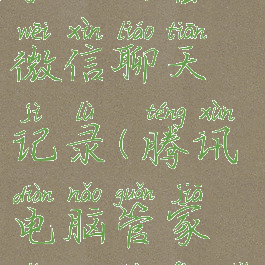 wēi xìn liáo tiān
微信聊天
jì lù téng xùn
记录(腾讯
diàn nǎo guǎn jiā
电脑管家